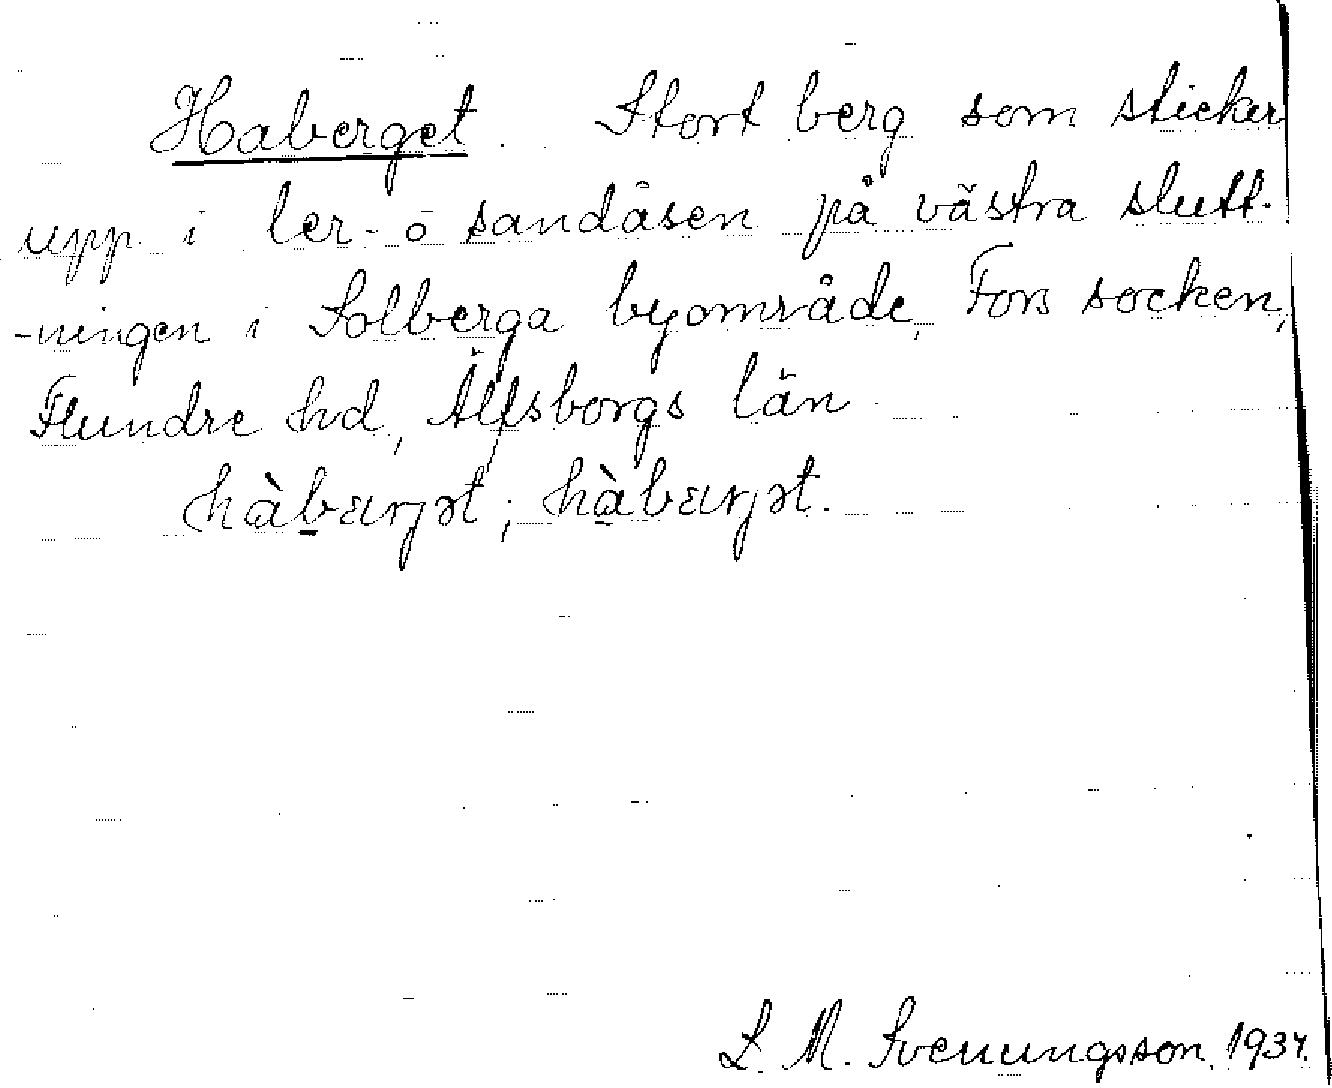 Haberget. Stort berg som sticker
upp i ler- o sandåsen på västra slutt-
-ningen i Solberga byområde, Fors socken,
Flundre hd, Älfsborgs län
hàbærjət; hàbærjət.
L. M. Svenungsson 1934.